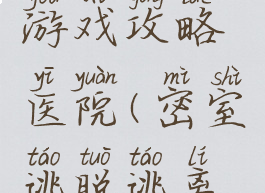 yóu xì gōng lüè
游戏攻略
yī yuàn mì shì
医院(密室
táo tuō táo lí
逃脱逃离